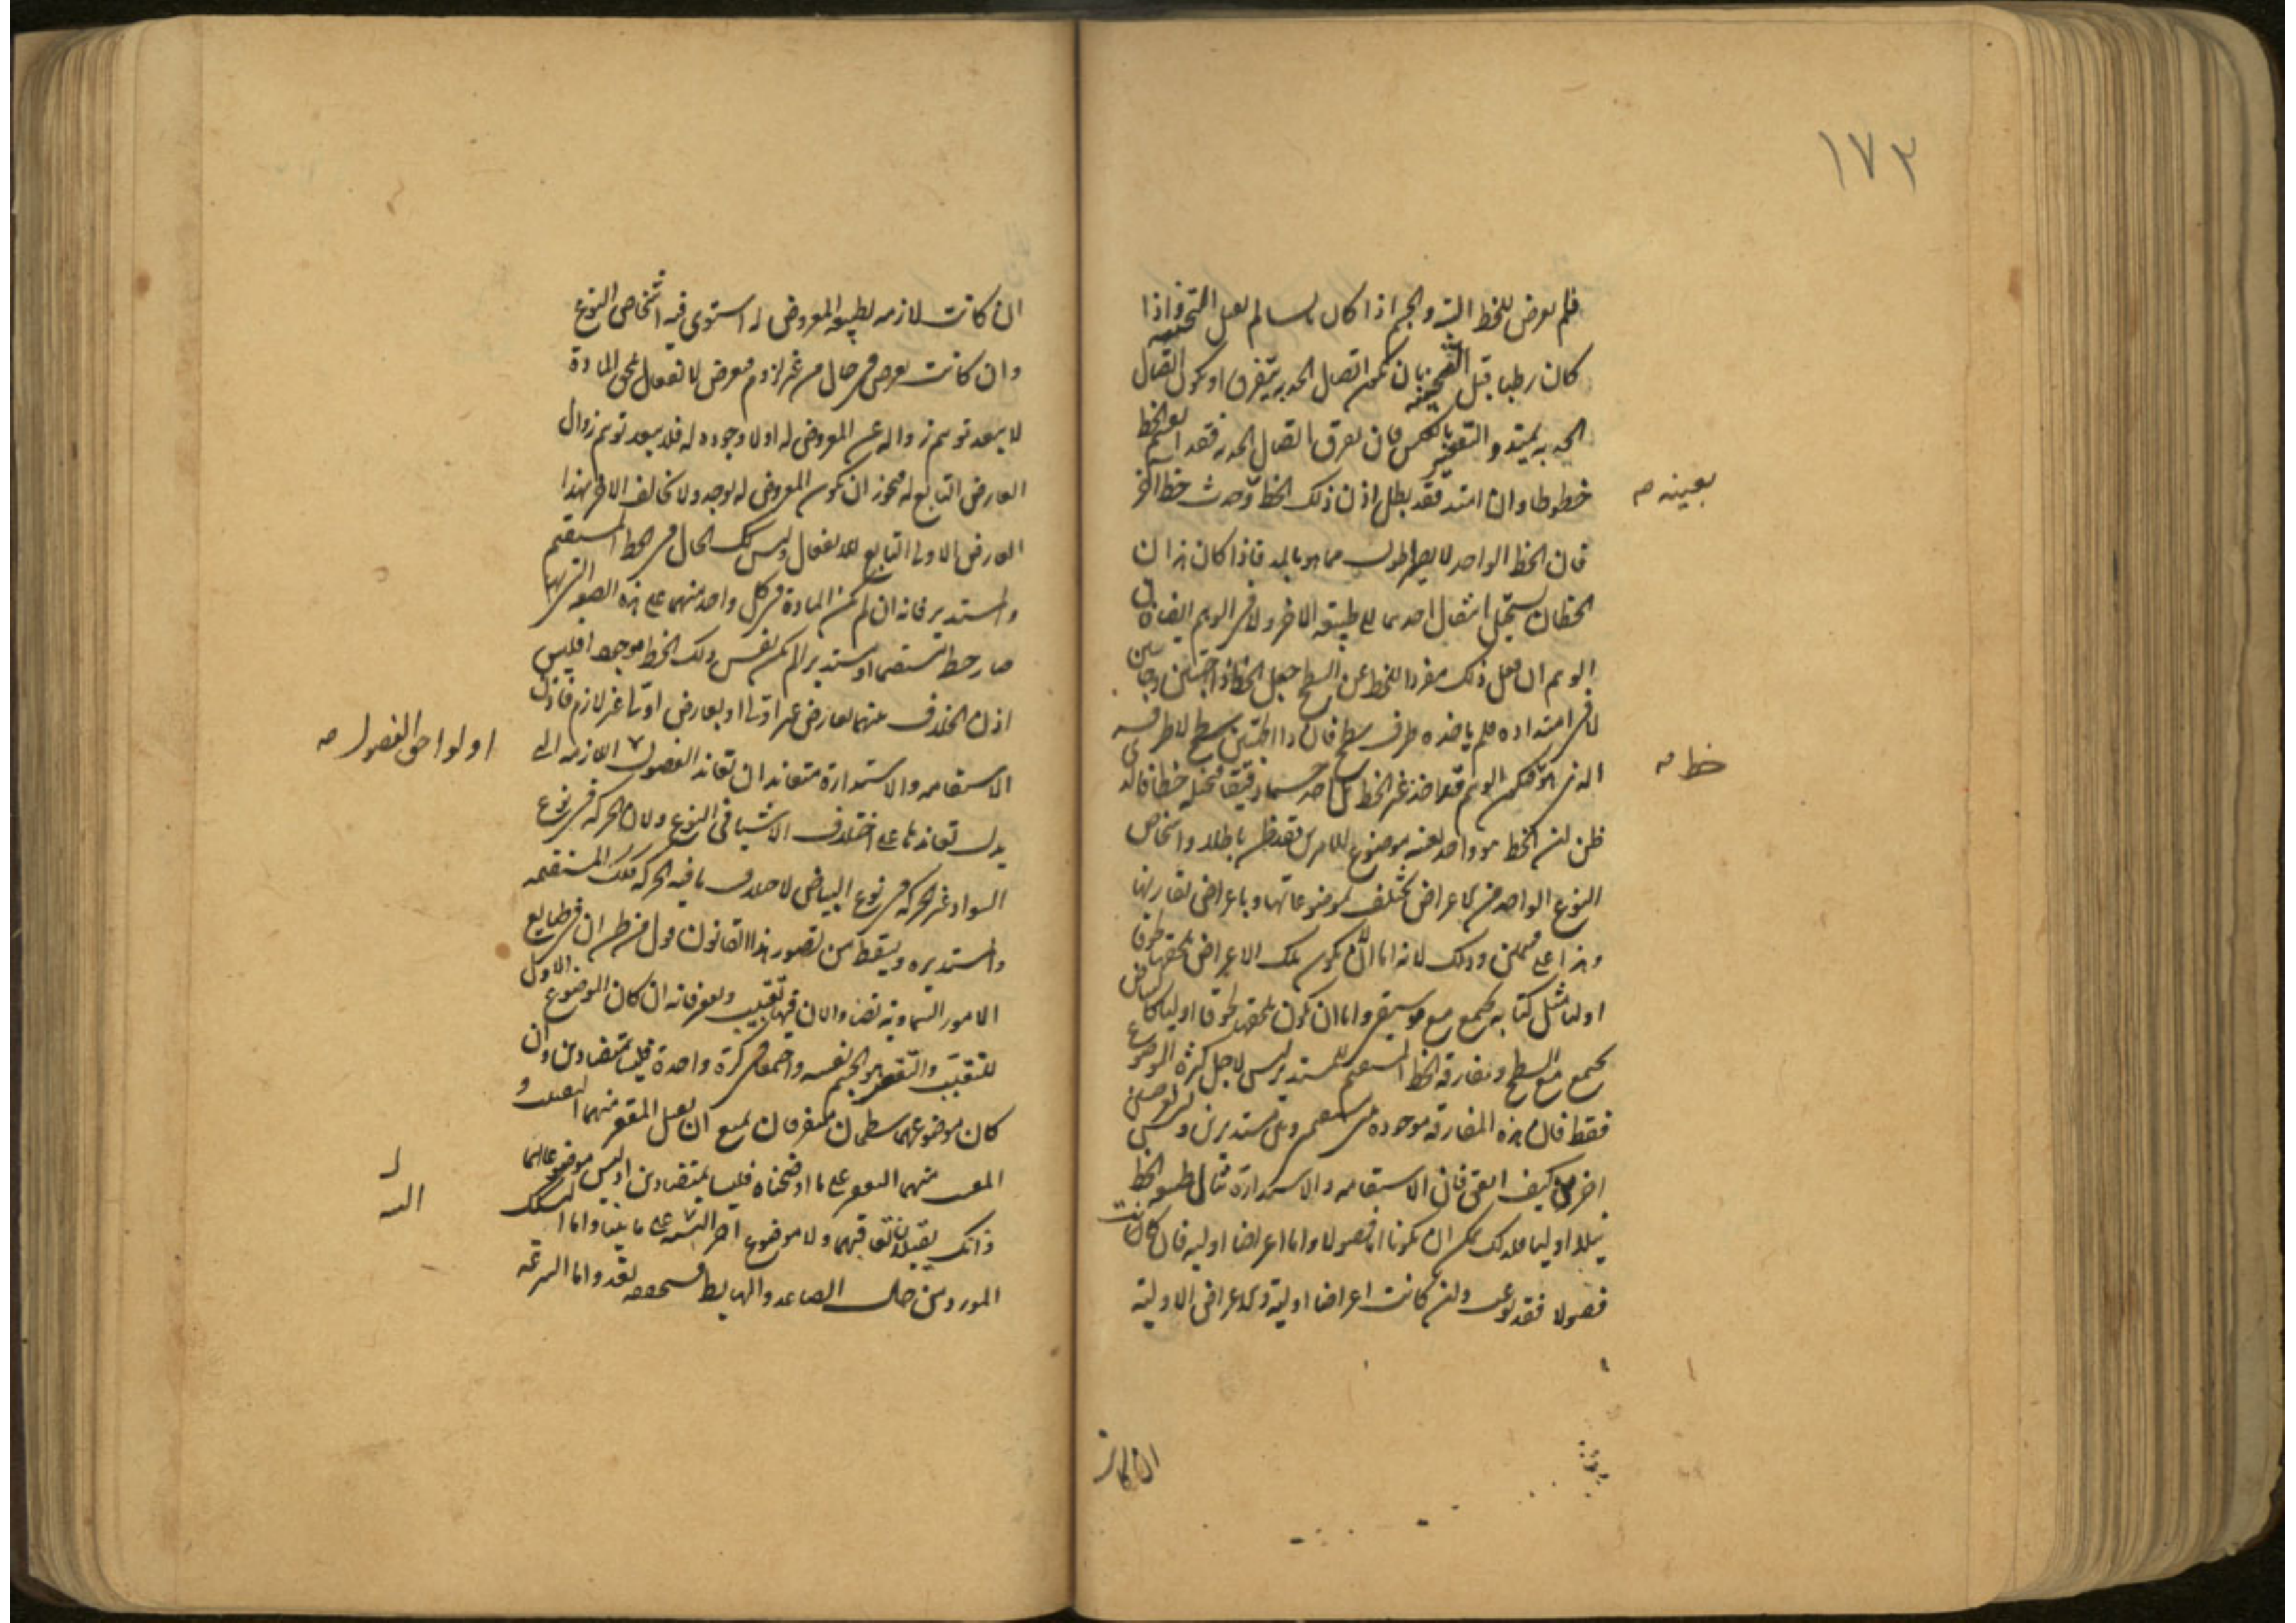 ١٧٣
فلم يعرض للخط البتة والجسم اذا كان يابسا لم يقبل التحنية واذا
كان رطبا قبل التحنية بان يكون اتصال الحدبة يتفرق او يكون اتصال
الحدبة يمتد والتقعير بالعكس فان تفرق اتصال الحدبة فقد انقسم الخط
خطوطا وان امتد فقد بطل اذن ذلك الخط وحدث خط اخر
بعينه صح
فان الخط الواحد لا يصير اطول مما هو بالمد فاذا كان هذان
الخطان يستحيل انتقال احدهما الى طبيعة الاخر ولا في الوهم ايضا فان
الوهم ان فعل ذلك مفردا للخط عن السطح جعل الخط ذا جهتين وجانبين
لا في امتداده فلم ياخذه طرف سطح فان ذا الجهتين سطح لا طرفه
الذي هو فيكون الوهم قد اخذ غير الخط بل اخذ جسما دقيقا فتخيله خطا فالذي
خط صح
ظن ان الخط هو واحد بعينه موضوع للامرين فقد ظن باطلا واشخاص
النوع الواحد من الاعراض تختلف بموضوعاتها وباعراض تقارنها
وهذا على قسمين وذلك لانه اما ان يكون تلك الاعراض تلحقها لحوقا
اوليا مثل كتابة تجتمع مع موسيقى واما ان تكون تلحقها لحوقا اوليا كبياض
يجتمع مع السطح ومفارقة الخط المستقيم للمستدير ليس لاجل كثرة الموضوع
فقط فان هذه المفارقة موجودة بين مستقيمين وبين مستديرين وليس لعرضين
اخرين كيف اتفق فان الاستقامة والاستدارة تنال طبيعة الخط
نيلا اوليا فلذلك يمكن ان يكونا اما فصولا واما اعراضا اولية فان كانت
فصولا فقد نوعت وان كانت اعراضا اولية والاعراض الاولية
ان كانت
ان كانت لازمة لطبيعة المعروض له استوى فيه اشخاص النوع
وان كانت تعرض في حال من غير لزوم فعرض لانفعال يلحق المادة
لا يبعد توهم زواله عن المعروض له اولا وجوده له فلا يبعد توهم زوال
العارض التابع له فيجوز ان يكون المعروض له يوجد ولا يخالف الاخر بهذا
العارض الاولي التابع للانفعال وليس كذلك الحال في الخط المستقيم
والمستدير فانه ان لم تكن المادة في كل واحد منهما على هذه الصورة التي بها
صار خطا مستقيما او مستديرا لم يكن نفس ذلك الخط موجودا فليس
اذن الخلاف بينهما بعارض غير اولي او بعارض اولي غير لازم فاذن
الاستقامة والاستدارة متعاندان تعاند الفصول اللازمة التي
او لواحق الفصول صح
يدل تعاندها على اختلاف الاشياء في النوع ولان الحركة في نوع
السواد غير الحركة في نوع البياض لاختلاف ما فيه الحركة فكذلك المستقيمة
والمستديرة ويسقط من تصور هذا القانون قول من ظن ان في طبايع
الامور السماوية تضادا لان فيها تقبيبا وتقعيرا فانه ان كان الموضوع الاول
للتقبيب والتقعير هو الجسم نفسه واجتمعا في كرة واحدة فليسا بمتضادين وان
كان موضوعهما سطحان متفرقان يمتنع ان يقبل المقعر منهما التقبيب و
المقبب منهما التقعير على ما اوضحناه فليسا بمتضادين اذ ليس موضوعاهما
ذانك يقبلان تعاقبهما ولا موضوع اخر البتة على ما بينا واما الشك
البتة
المورد من حال الصاعد والهابط فسحقه بعد واما السرعة